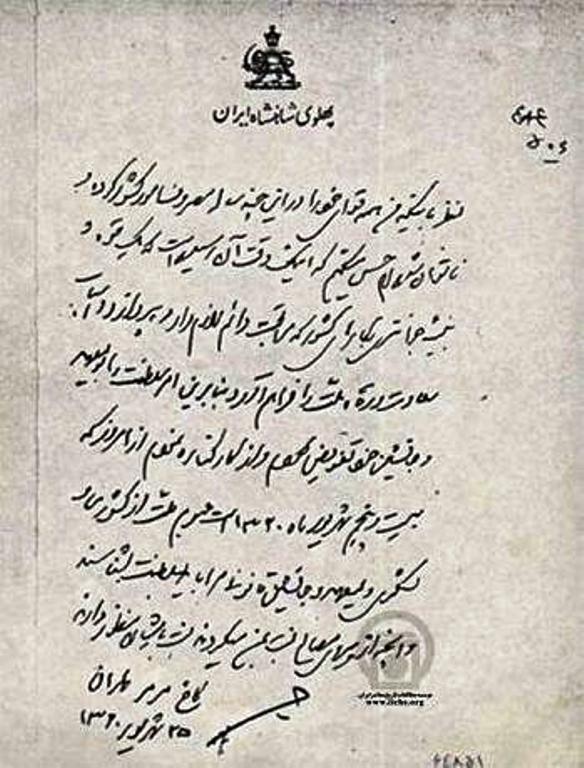 پهلوی شاهنشاه ایران
نظر باینکه من همه قوای خود را در این چند ساله مصروف امور کشور کرده و
ناتوان شده‌ام حس میکنم که اینک وقت آن رسیده است که یک قوه و
بنیه جوانتری بکارهای کشور که مراقبت دائم لازم دارد بپردازد و اسباب
سعادت و رفاه ملت را فراهم آورد بنابراین امر سلطنت را بولیعهد
و جانشین خود تفویض نمودم و از کار کناره نمودم از امروز که
بیست و پنج شهریور ماه ۱۳۲۰ است عموم ملت از کشوری و
لشکری ولیعهد و جانشین قانونی مرا باید بسلطنت بشناسند
و آنچه از پیروی مصالح نسبت بمن میکردند نسبت بایشان منظور دارند
کاخ مرمر تهران
۲۵ شهریور ۱۳۲۰
www.iichs.org